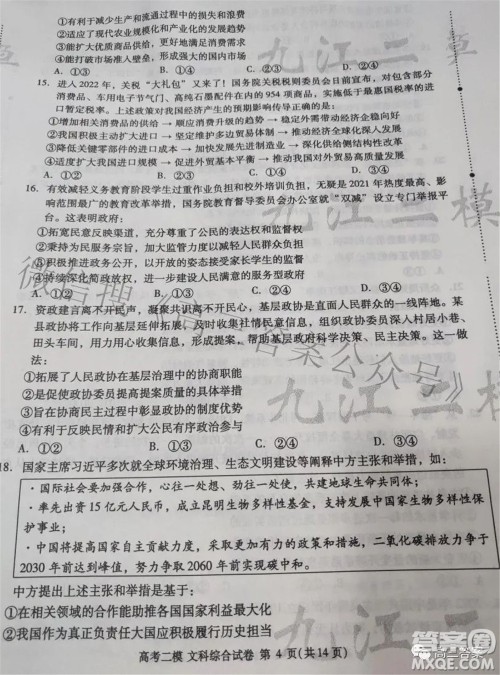 ①有利于减少生产和流通过程中的损失和浪费
②适应了现代农业规模化和产业化的发展要求
③能扩大优质商品供给，更好地满足居民需求
④能打破市场准入壁垒，形成强大的国内市场
A．①③ B．①④ C．②③ D．②④
15．进入 2022 年，关税“大礼包”又来了！国务院关税税则委员会日前宣布，对包含部分
消费品、车用电子节气门、高纯石墨配件在内的 954 项商品，实施低于最惠国税率的进
口暂定税率。上述政策对我国经济产生的预期影响传导正确的是：
①增加相关消费品供给 → 顺应消费升级趋势 → 带动消费增长 → 推动经济企稳向好
②我国积极主动扩大进口 → 坚定维护多边贸易体制 → 推动经济全球化深入发展
③降低关键零部件的进口成本 → 加快先进制造业发展 → 深化供给侧结构性改革
④适度扩大我国进口规模 → 促进外贸基本平衡 → 推动我国对外贸易高质量发展
A．①② B．①③ C．②④ D．③④
16．有效减轻义务教育阶段学生过重作业负担和校外培训负担，无疑是 2021 年热度最高、影
响范围最广的教育改革举措，国务院教育督导委员会办公室就“双减”设立专门举报平
台。这表明政府：
①拓宽民意反映渠道，充分尊重了公民的表达权和监督权
②秉持为民服务宗旨，加大以人民为中心的改革攻坚力度
③自觉接受人民监督，减小人民群众办事负担
④持续深化简政放权，进一步建设人民满意的服务型政府
A．①② B．①③ C．②④ D．③④
17．资政建言离不开民声，凝聚共识离不开民心，基层政协是直接面向人民群众的一线。某
县政协将工作向基层延伸拓展，及时收集社情民意信息，组织政协委员深入村居小巷、
田头车间，用力用心收集信息，形成提案，帮助基层政府科学决策、民主决策。这一做
法：
①拓展了人民政协在基层治理中的协商职能
②是促使政协委员提高提案质量的具体举措
③旨在协商民主过程中彰显政协的制度优势
④有利于反映民情和扩大公民有序政治参与
A．①② B．①③ C．②④ D．③④
18．国家主席习近平多次就全球环境治理、生态文明建设等阐释中方主张和举措，如：
·国际社会要加强合作，心往一处想、劲往一处使，共建地球生命共同体；
·率先出资 15 亿元人民币，成立昆明生物多样性基金，支持发展中国家生物多样性保
护事业；
·中国将提高国家自主贡献力度，采取更加有力的政策和措施，二氧化碳排放力争于
2030 年前达到峰值，努力争取 2060 年前实现碳中和。
中方提出上述主张和举措是基于：
①在相关领域的合作能助推各国国家利益最大化
②我国作为真正负责任大国应积极履行历史担当
高考二模 文科综合试卷 第 4 页（共 14 页）